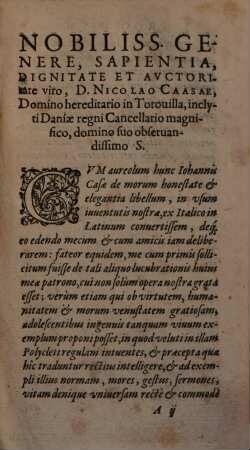 NOBILISS. GE-
NERE, SAPIENTIA,
DIGNITATE ET AVCTORI-
tate viro, D. NICOLAO CAASAE,
Domino hereditario in Torouilla, incly-
ti Daniæ regni Cancellario magni-
fico, domino suo obseruan-
dissimo S.
CVM aureolum hunc Iohannis
Casæ de morum honestate &
elegantia libellum, in vsum
iuuentutis nostræ, ex Italico in
Latinum conuertissem, deq́;
eo edendo mecum & cum amicis iam delibe-
rarem: fateor equidem, me cum primis solli-
citum fuisse de tali aliquo lucubrationis huius
meæ patrono, cui non solum opera nostra grata
esset: verùm etiam qui ob virtutem, huma-
nitatem & morum venustatem gratiosam,
adolescentibus ingenuis tanquam viuum ex-
emplum proponi posset, in quod veluti in illam
Polycleti regulam intuentes, & præcepta quæ
hic traduntur rectius intelligere, & ad exem-
pli illius normam, mores, gestus, sermones,
vitam denique vniuersam rectè & commodè
A ij